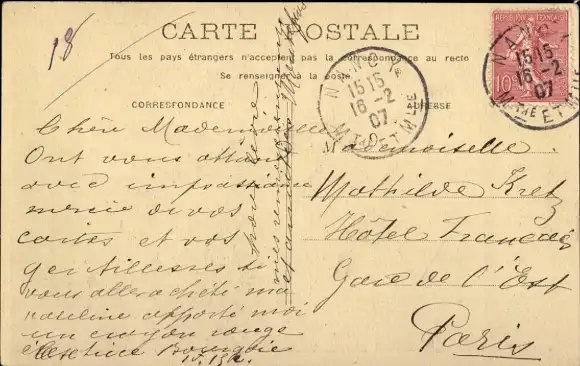 18
CARTE POSTALE
Tous les pays étrangers n'acceptent pas la correspondance au recto
Se renseigner à la poste
CORRESPONDANCE
ADRESSE
RÉPUBLIQUE FRANÇAISE
10c
NANCY
15 15
16-2
07
Mthe ET Mlle
NANCY
15 15
16-2
07
Mthe ET Mlle
Chère Mademoiselle
Ont vous attend
avec impassiance
mercie de vos
cartes et vos
gentillesses si
vous aller acheté ma
vaseline apporté moi
un crayon rouge
Mademoiselle.
Mathilde Kretz
Hôtel Français
Gare de l'Est
Paris